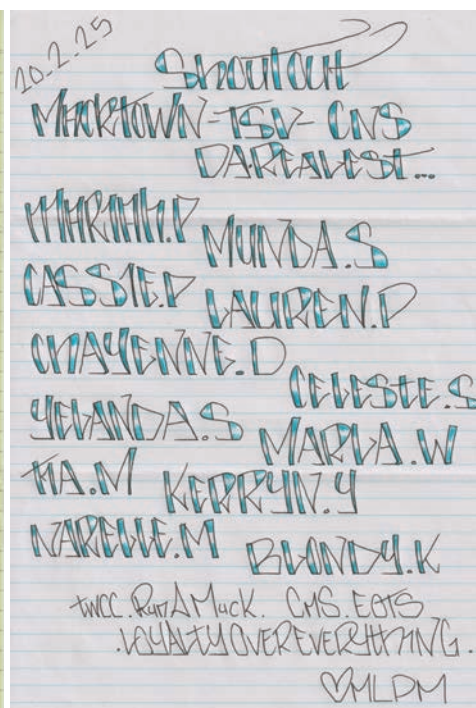 20.2.25
Shoutout
MACKTOWN-TSV-CNS
DAREALEST...
MUNDA.S
CASSIE.P LAUREN.P
CHAYENNE.D
CELESTE.S
YELANDA.S MARLA.W
TIA.M KERRYN.Y
NARELLE.M BLONDY.K
TWCC.RunAMuck. CMS.EOTS
.LOYALTYOVEREVERYTHING.
♡MLDM